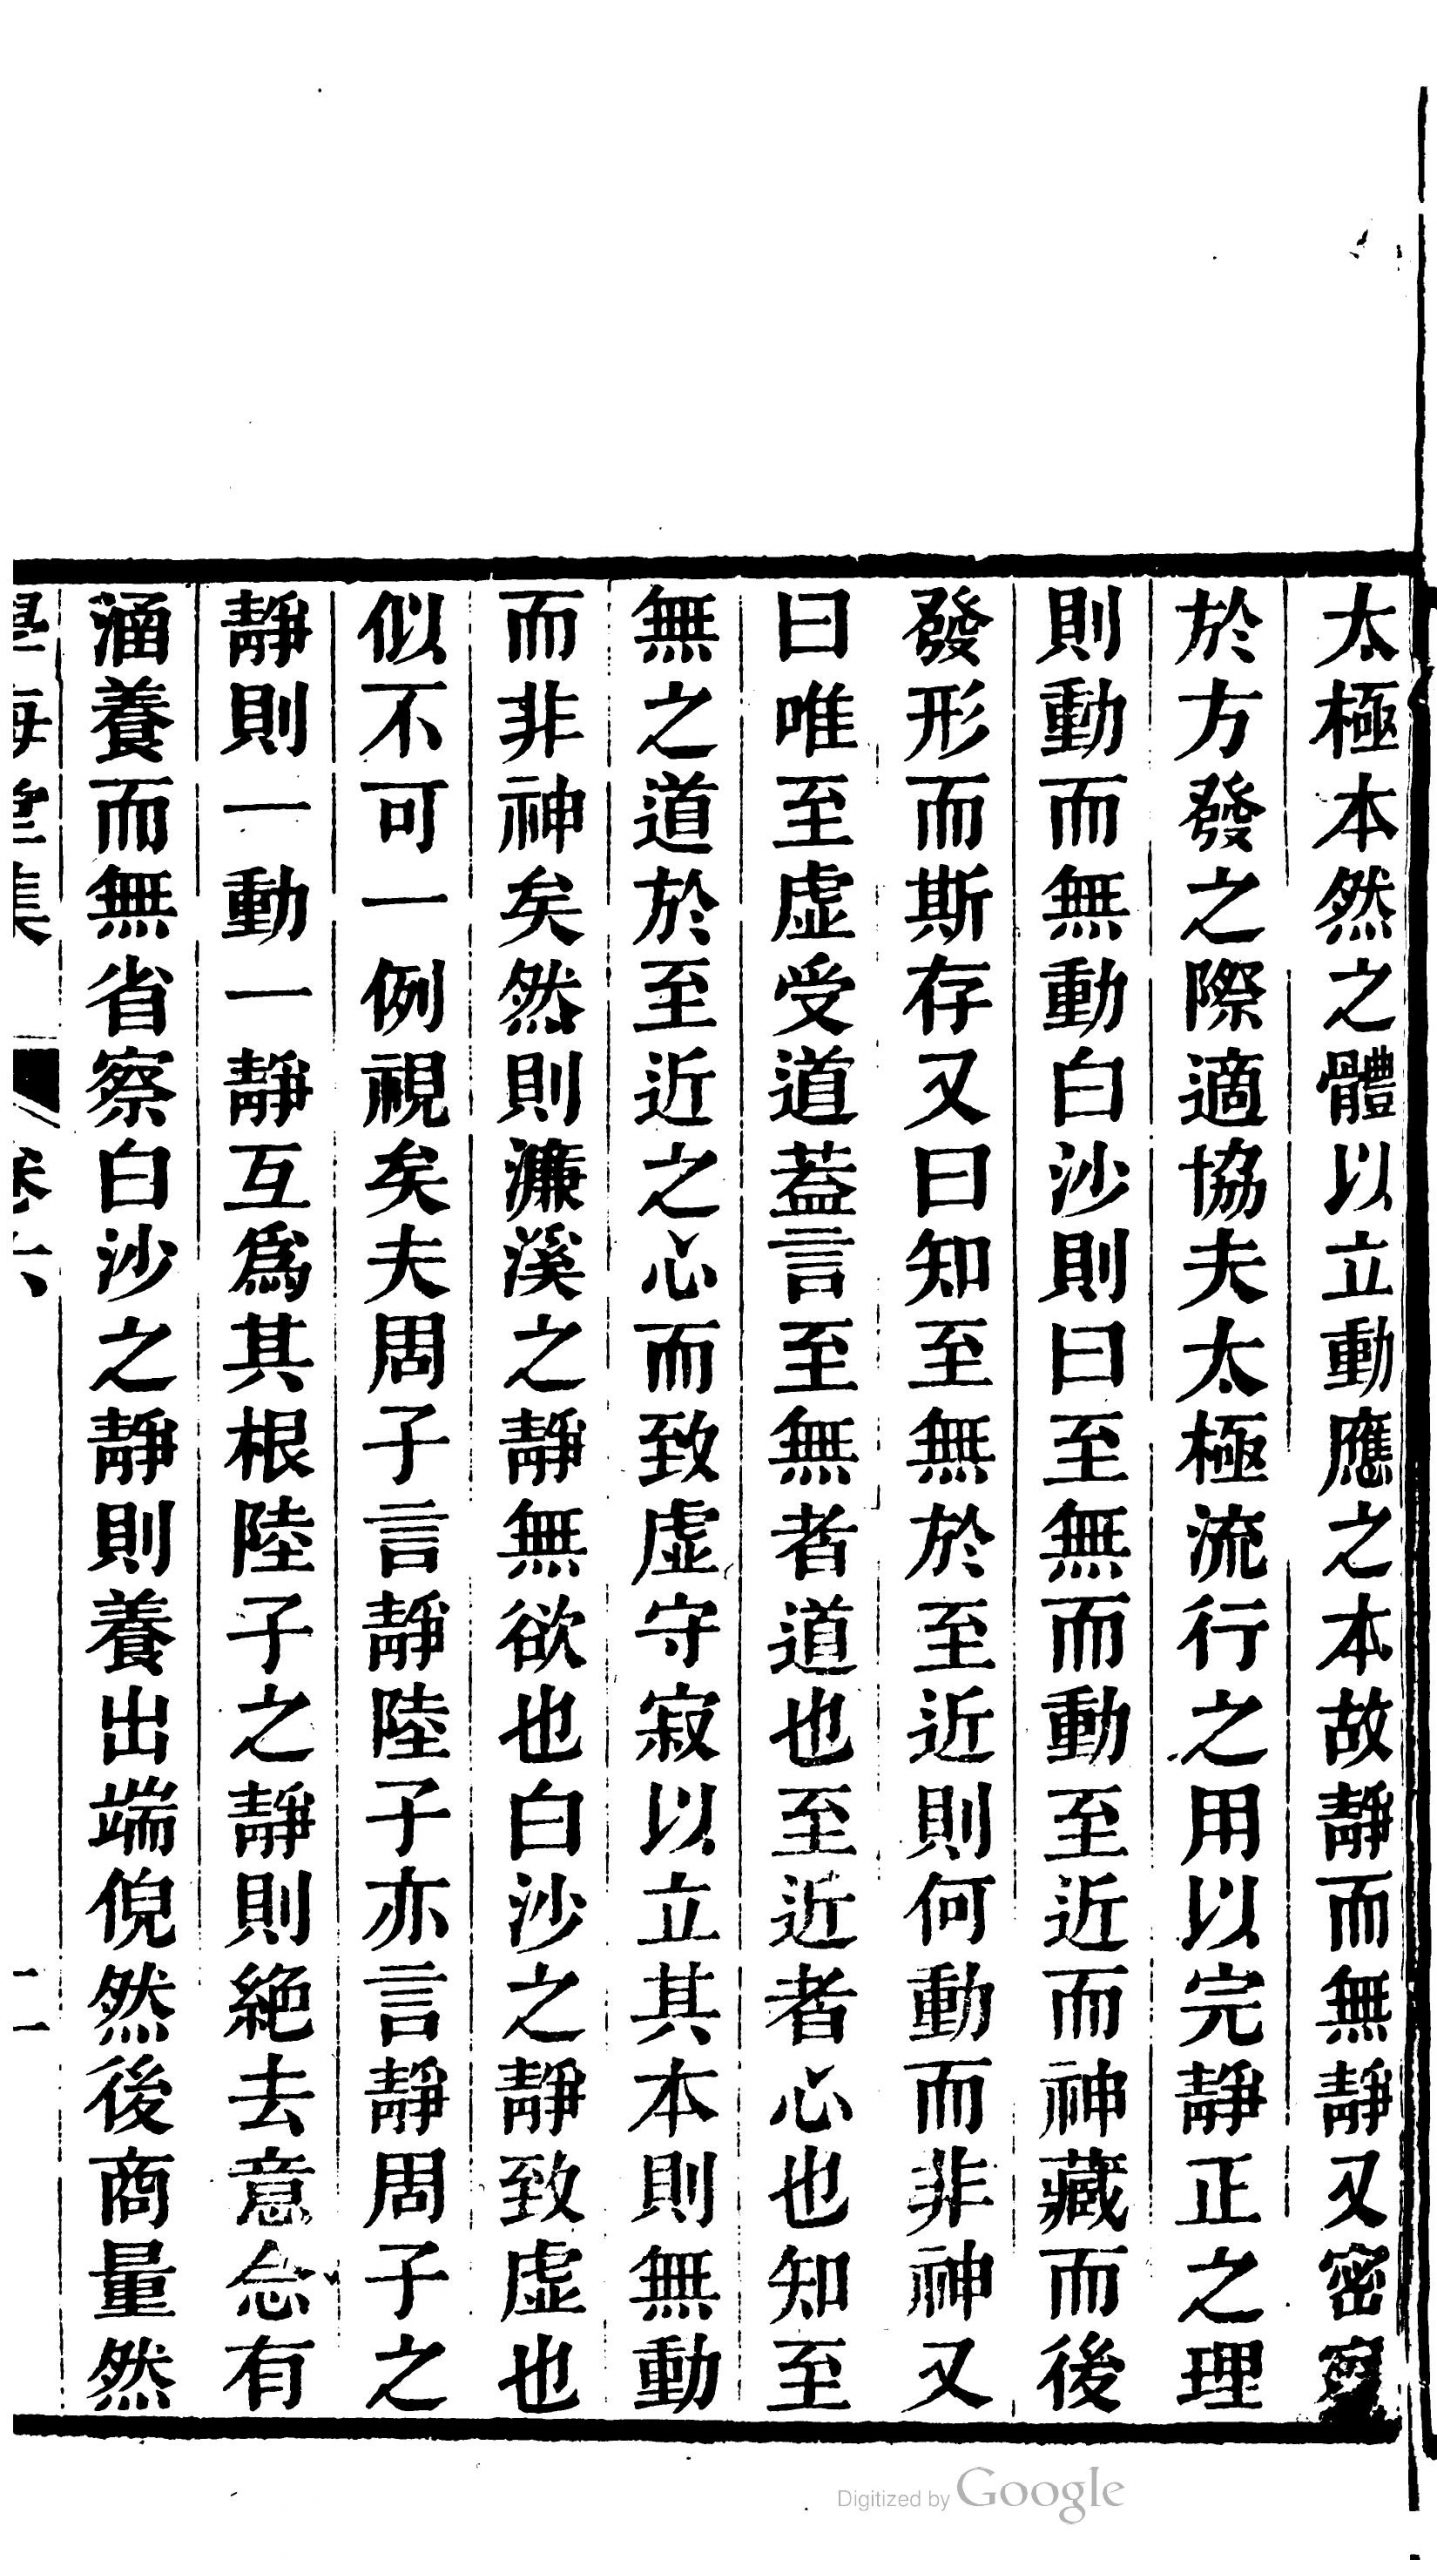 太極本然之體以立動應之本故靜而無靜又密
於方發之際適協夫太極流行之用以完靜正之理
則動而無動白沙則曰至無而動至近而神藏而後
發形而斯存又曰知至無於至近則何動而非神又
曰唯至虛受道蓋言至無者道也至近者心也知至
無之道於至近之心而致虛守寂以立其本則無動
而非神矣然則濂溪之靜無欲也白沙之靜致虛也
似不可一例視矣夫周子言靜陸子亦言靜周子之
靜則一動一靜互爲其根陸子之靜則絶去意念有
涵養而無省察白沙之靜則養出端倪然後商量然
學海堂集 卷六 二
Digitized by Google